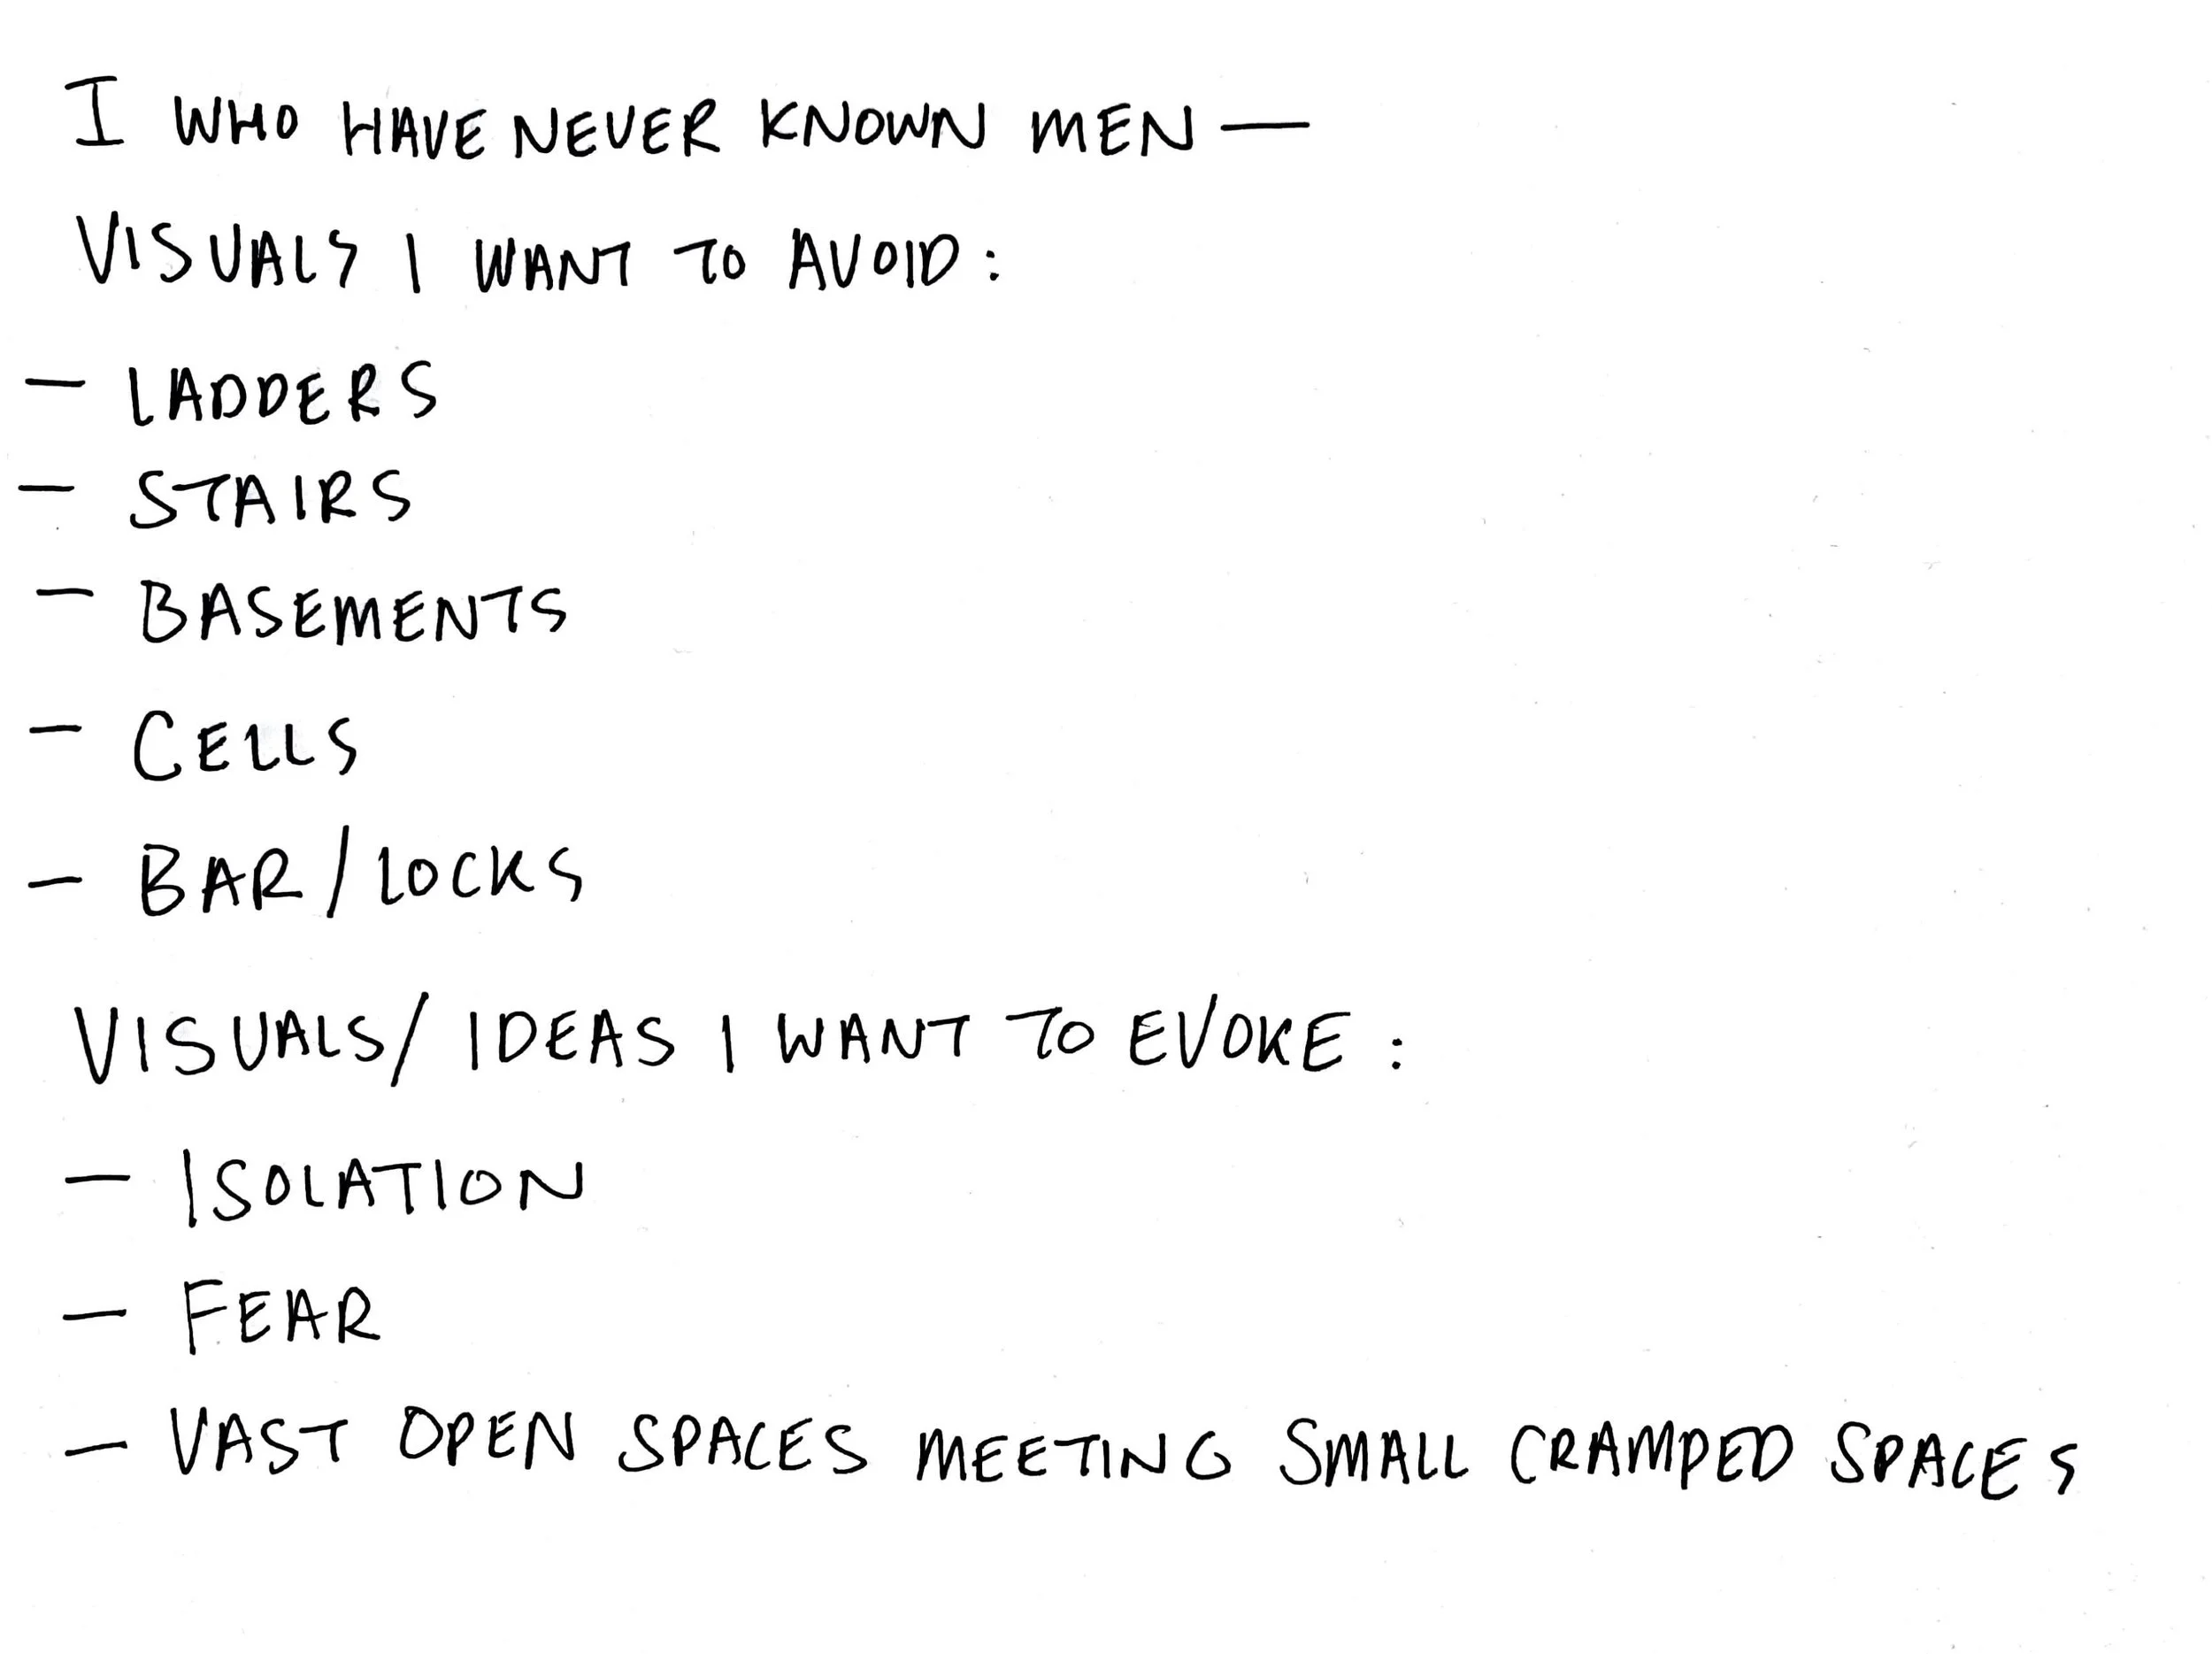 I WHO HAVE NEVER KNOWN MEN—
VISUALS I WANT TO AVOID:
- LADDERS
- STAIRS
- BASEMENTS
- CELLS
- BAR/LOCKS
VISUALS/IDEAS I WANT TO EVOKE:
- ISOLATION
- FEAR
- VAST OPEN SPACES MEETING SMALL CRAMPED SPACES